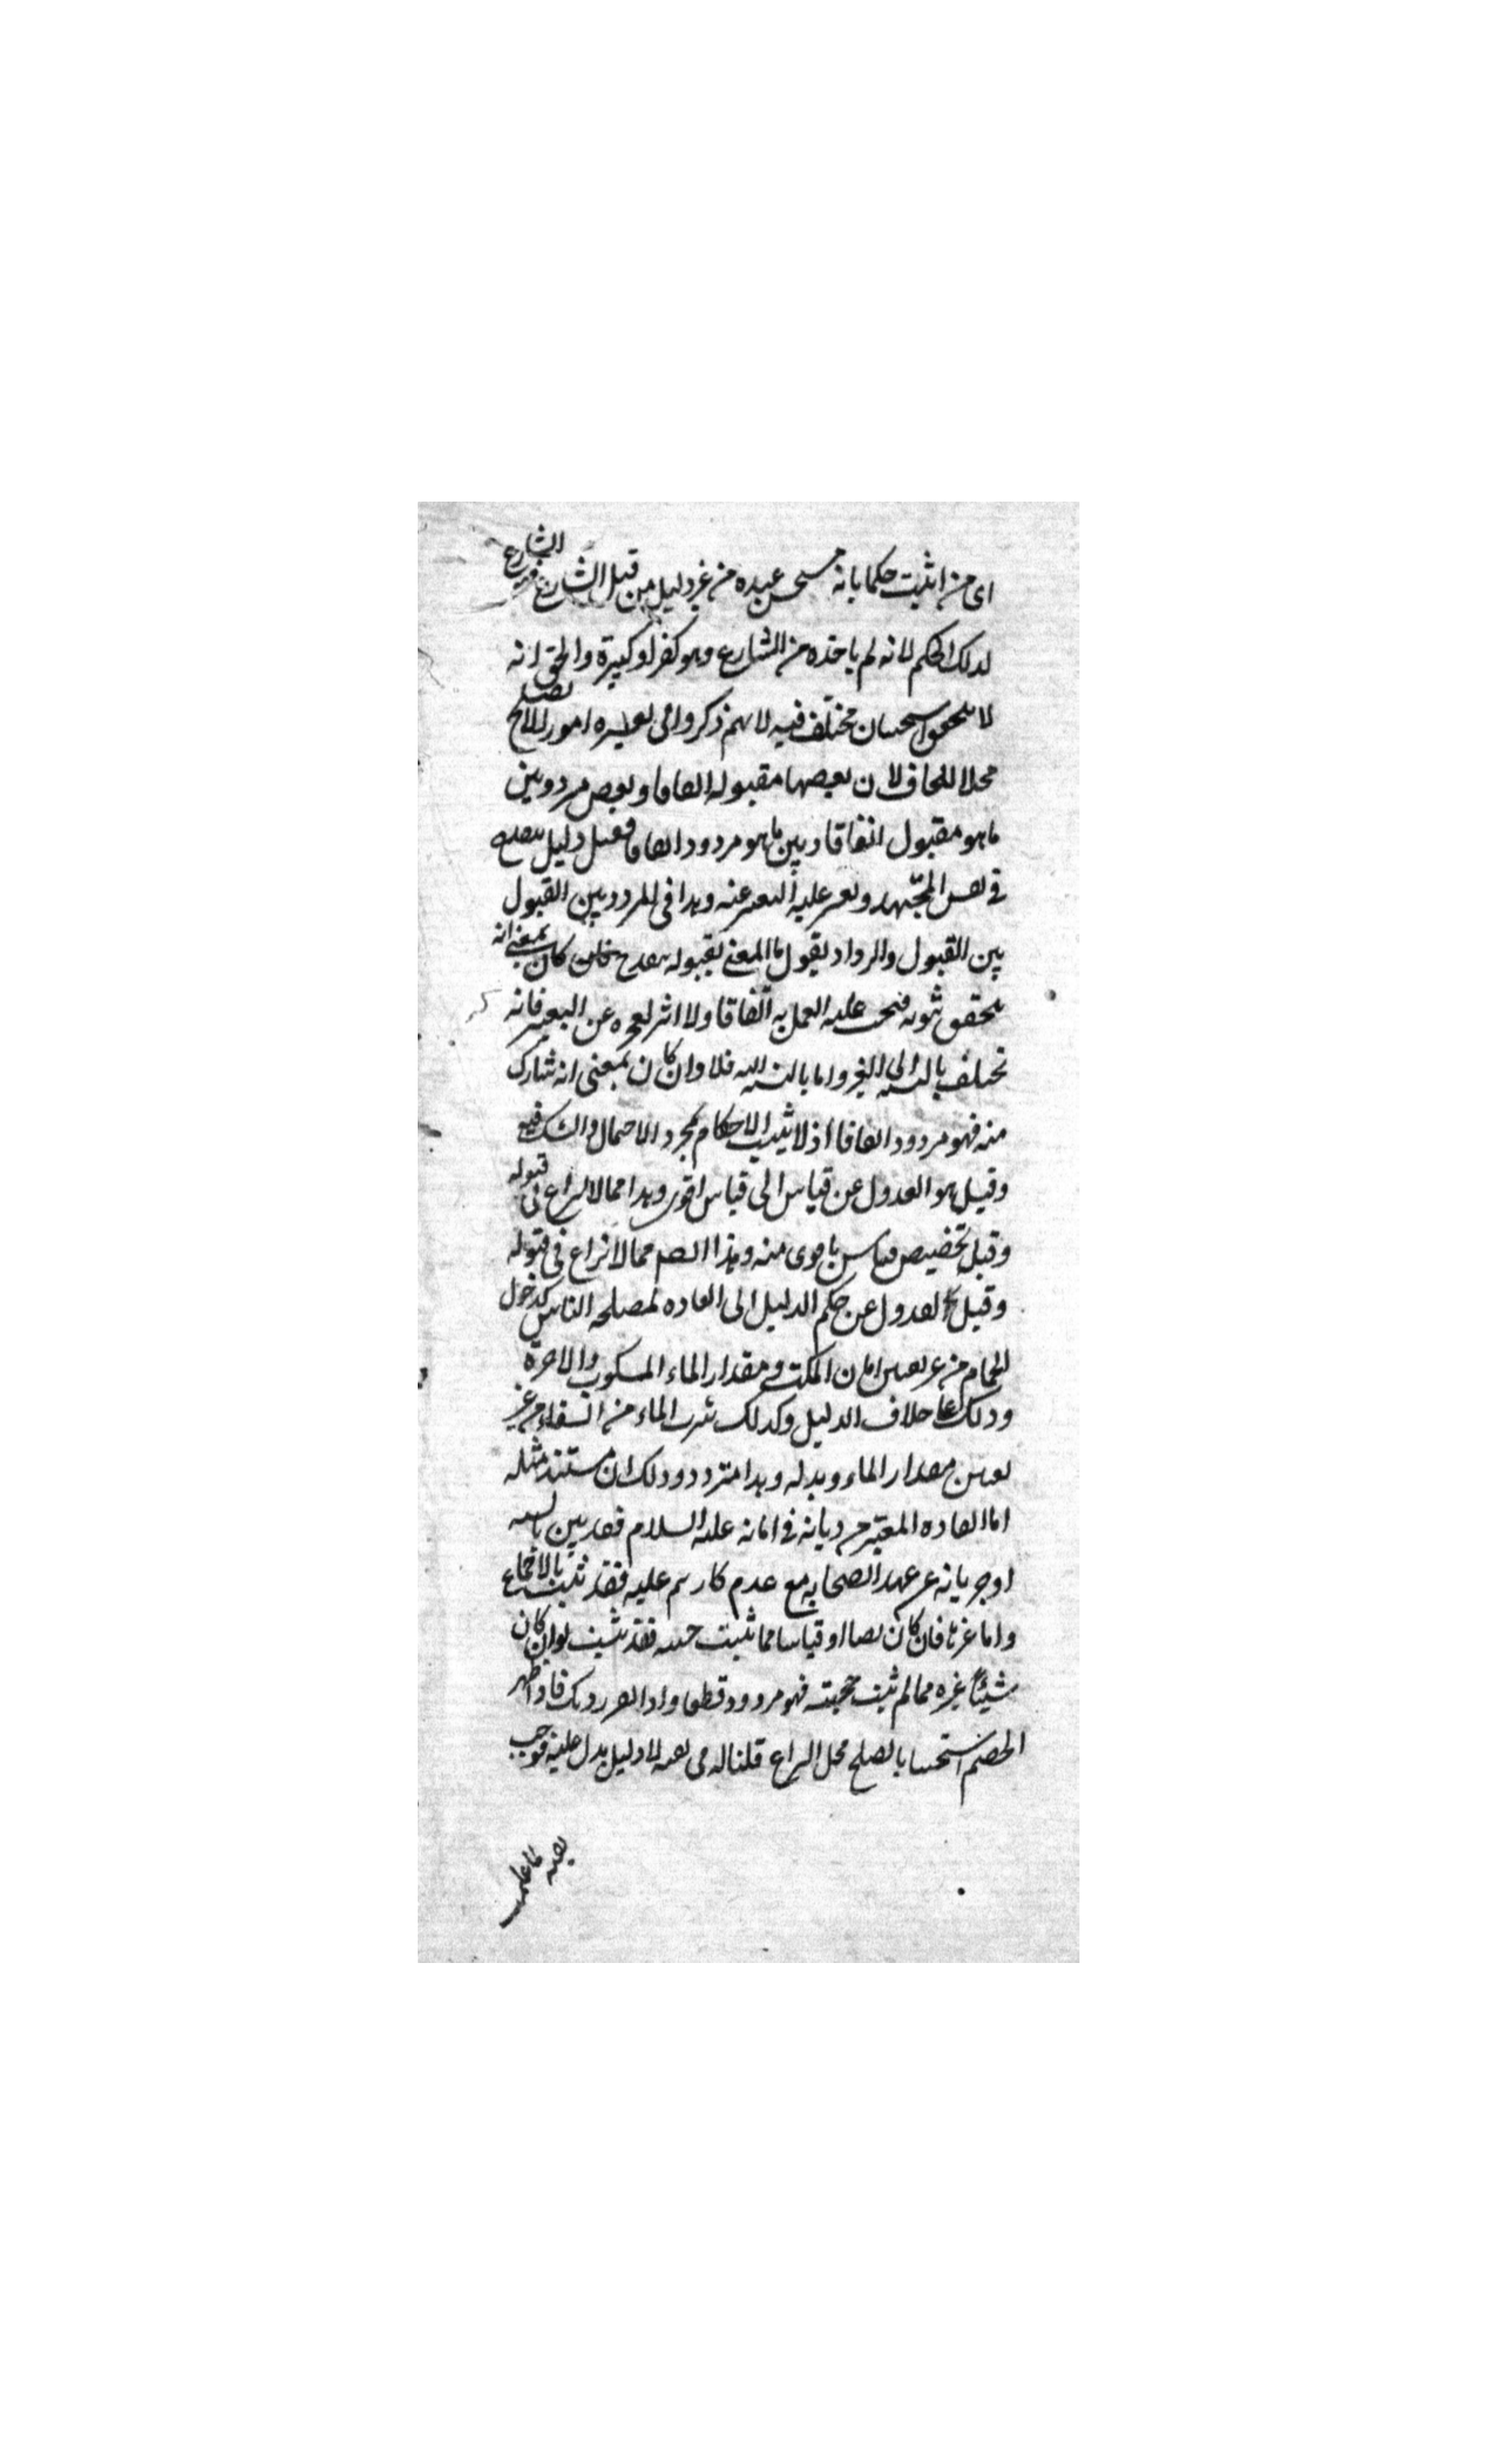 اى من اثبت حكما بانه مستحسن عنده من غير دليل من قبل الشارع فهو الشارع
لذلك الحكم لانه لم ياخذه من الشارع وهو كفر او كبيرة والحق انه
لا يتحقق استحسان مختلف فيه لانهم ذكروا فى تفسيره امورا لا تصلح
محلا للخلاف لان بعضها مقبوله اتفاقا وبعض مردد بين
ما هو مقبول اتفاقا وبين ما هو مردود اتفاقا فقيل دليل ينقدح
فى نفس المجتهد ويعسر عليه التعبير عنه وهذا فى المردد بين القبول
بين القبول والرد اذ يقول ما المعنى بقوله ينقدح فان كان بمعنى انه
يتحقق ثبوته فيجب عليه العمل به اتفاقا ولا اثر لعجزه عن التعبير فانه
يختلف بالنسبة الى الغير واما بالنسبة اليه فلا وان كان بمعنى انه شارك
منه فهو مردود اتفاقا اذ لا يثبت الاحكام بمجرد الاحتمال والشك فيه
وقيل هو العدول عن قياس الى قياس اقوى وهذا مما لا نزاع فى قبوله
وقيل تخصيص قياس باقوى منه وهذا ايضا مما لا نزاع فى قبوله
وقيل العدول عن حكم الدليل الى العاده لمصلحه الناس كدخول
الحمام من غير تعيين زمان المكث ومقدار الماء المسكوب والاجرة
وذلك على خلاف الدليل وكذلك شرب الماء من السقاء من غير
تعيين مقدار الماء وبدله وهذا متردد وذلك ان مستند مثله
اما العاده المعتبر جريانه فى زمانه عليه السلام فقد بين بالسنه
او جريانه عن عهد الصحابه مع عدم انكارهم عليه فقد ثبت بالاجماع
واما غيرها فان كان نصا او قياسا مما ثبت حجيته فقد ثبت وان كان
شيئا غيره مما لم يثبت حجيته فهو مردود قطعا واذا تقرر ذلك فاذا اظهر
الخصم استحسانا يصلح محل النزاع قلنا له فى نفيه لا دليل يدل عليه فوجب
نفيه لما علمت